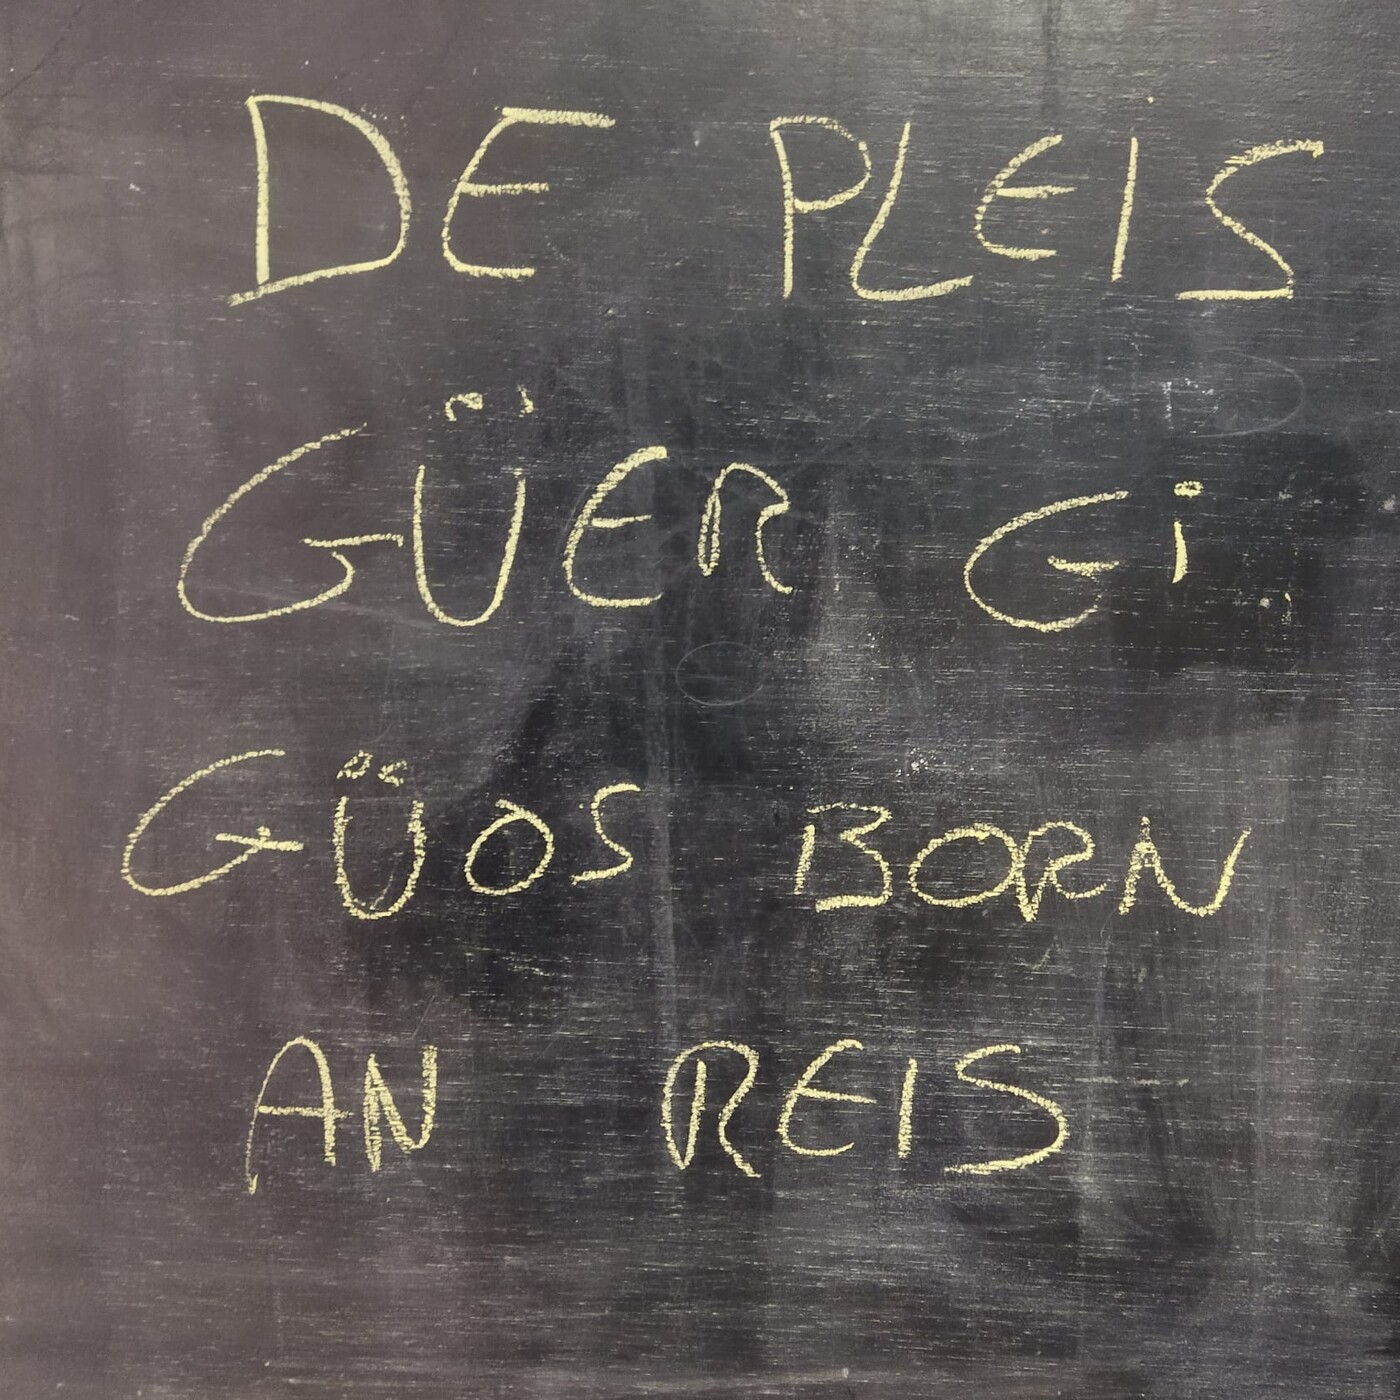 DE PLEIS
GÜER Gi
GÜOS BORN
AN REIS